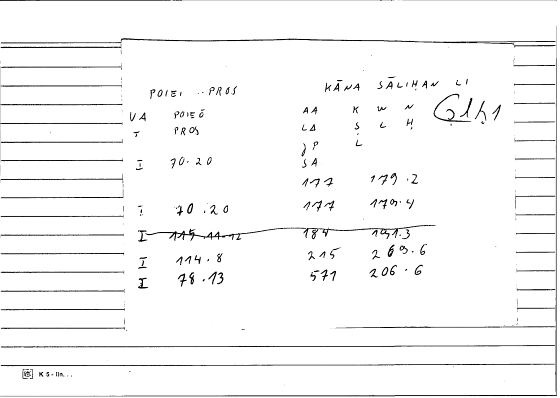 POIEI .. PROS KĀNA SĀLIḤAN LI
VA POIEŌ AA K W N Ṣlḥ1
T PROS LA Ṣ L Ḥ
JP L
I 70.20 SA
177 179.2
I 70.20 177 179.4
I 115.11-12 184 191.3
I 114.8 215 269.6
I 78.13 571 206.6
K 5 - lln...